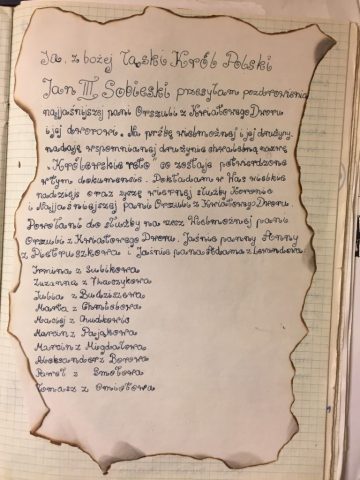 Ja, z bożej łaski Król Polski
Jan III Sobieski przesyłam pozdrowienia
najjaśniejszej pani Orszuli z Kwiatowego Dworu
i jej dworowi. Na prośbę wielmożnej i jej drużyny
nadaję wspomnianej drużynie chwalebną nazwę
"Królewskie " co zostaje potwierdzone
w tym dokumencie. Pokładam w Was wielkie
nadzieje oraz życzę wiernej służby Koronie
i Najjaśniejszej pani Orszuli z Kwiatowego Dworu.
Powołani do służby na rzecz Wielmożnej pani
Orszuli z Kwiatowego Dworu, Jaśnie panny Anny
z Pietruszkowa i Jaśnie pana Adama z
Irmina z
Zuzanna z Tkaczykowa
Julia z Budziszewa
Marta z Chmielowa
Maciej z Chudkowa
Marcin z Pająkowa
Marcin z Migdałowa
Aleksander z Borowa
Paweł z Smołowa
Tomasz z Omiotowa